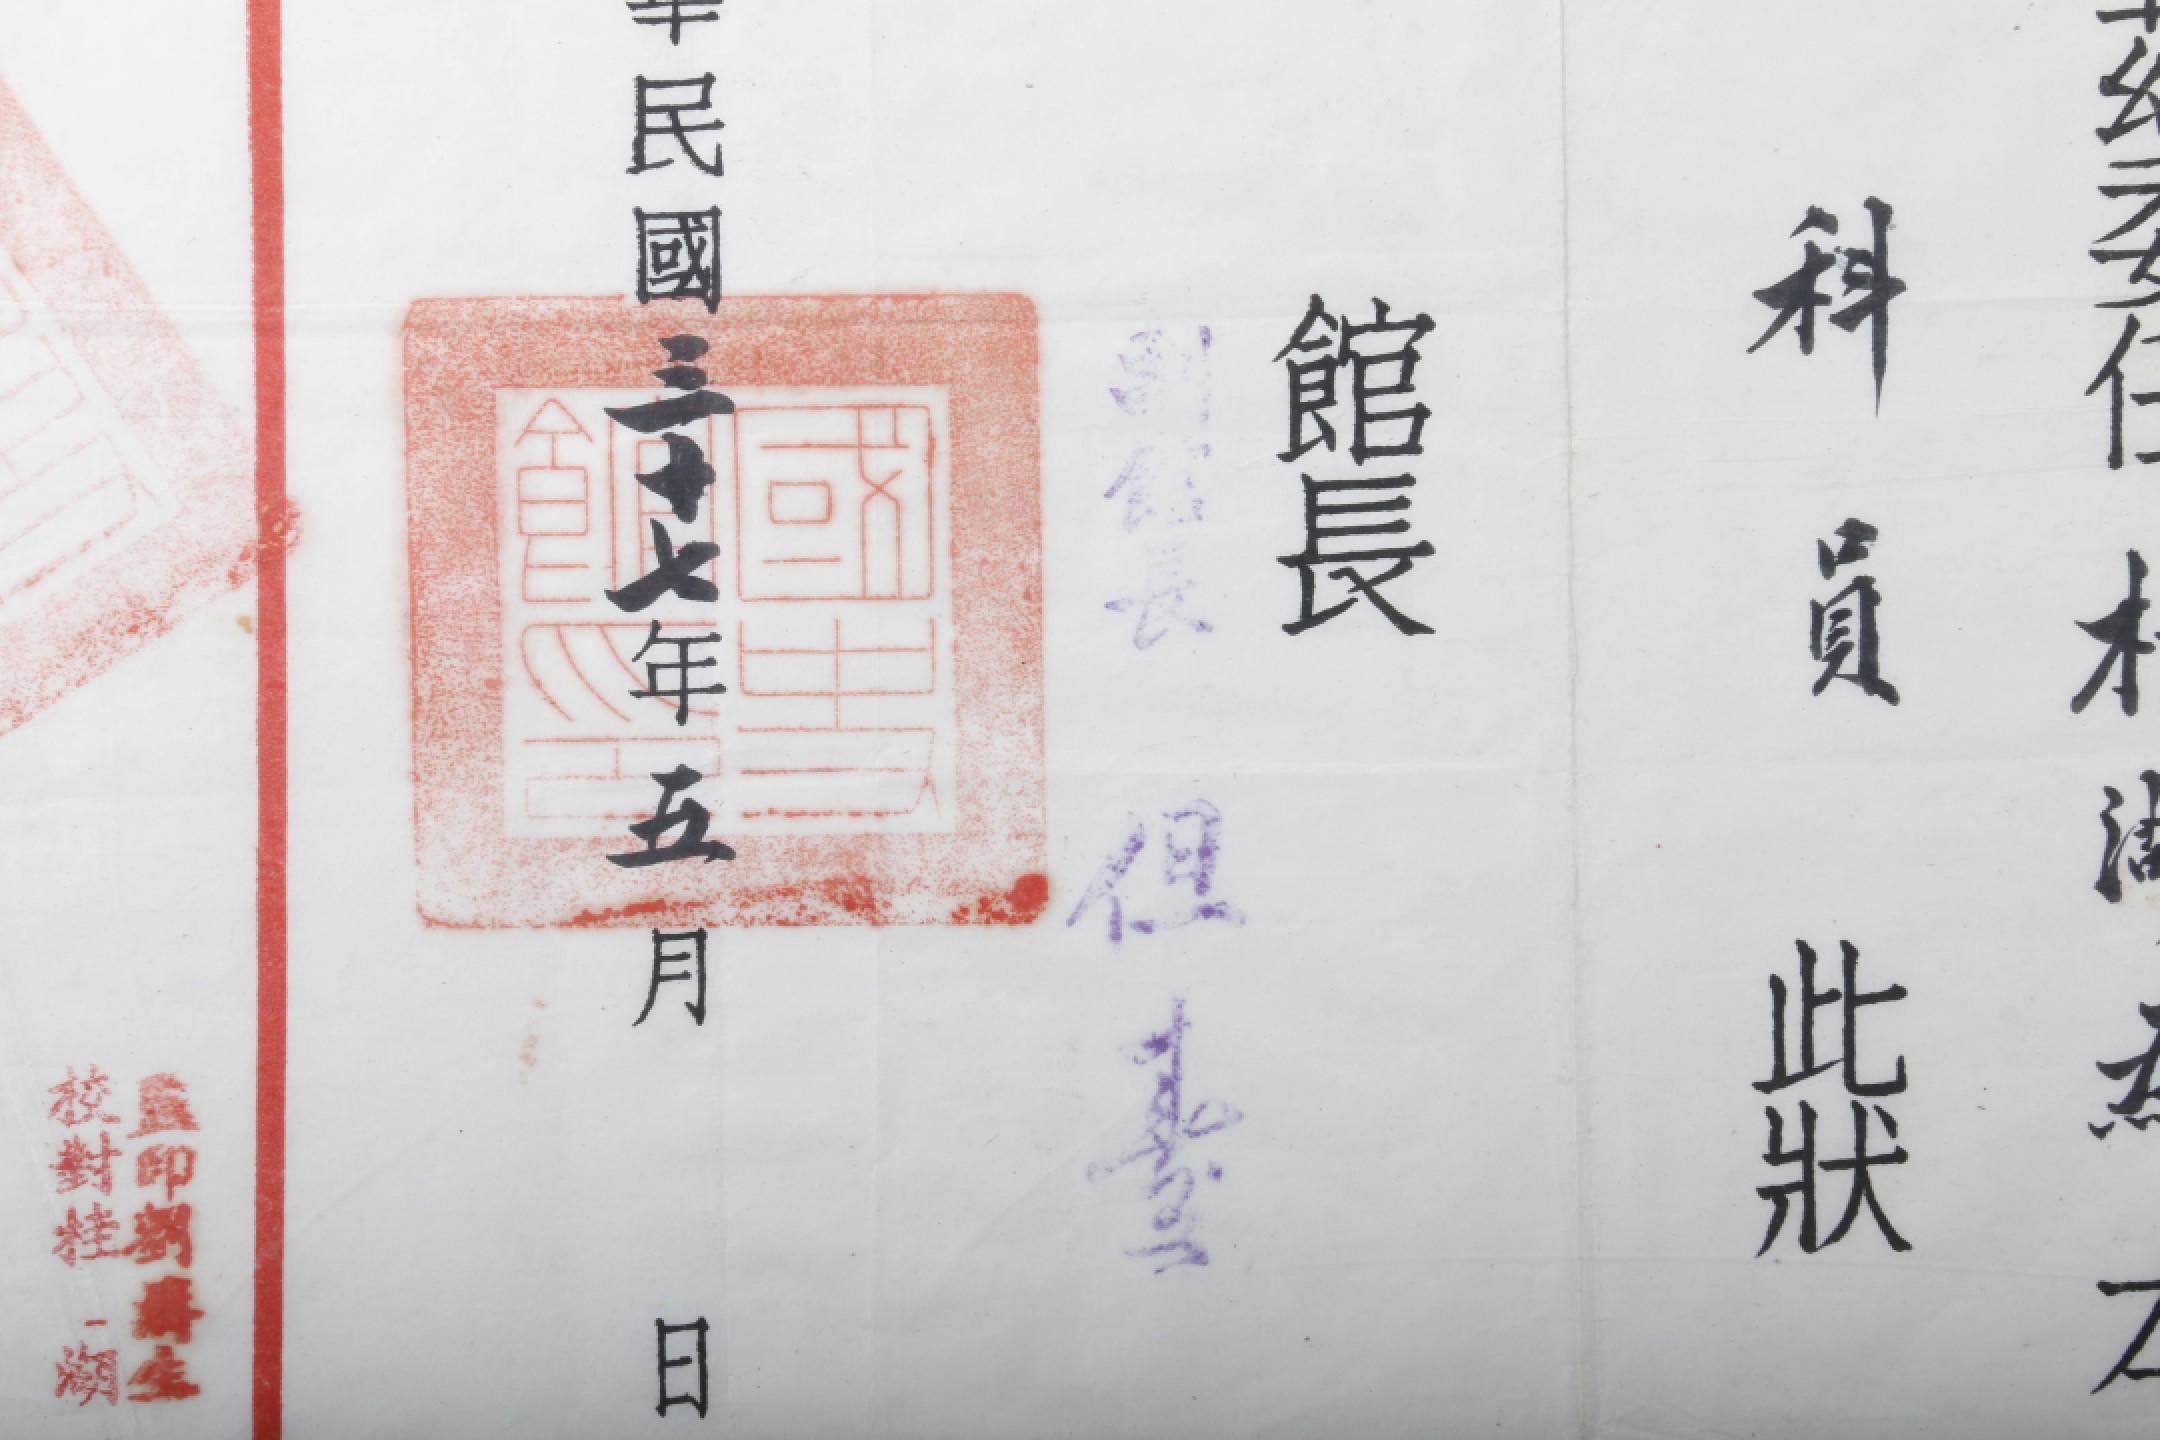 茲委任
科員 此狀
館長
副館長 但燾
華民國三十七年五月 日
國史館印
監印劉壽生
校對桂一湖